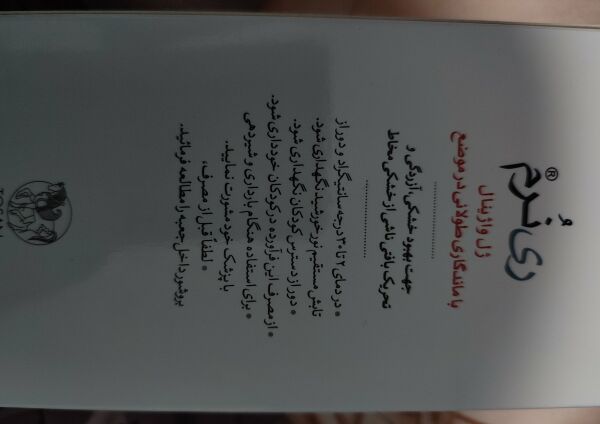 ری نُرم®
ژل واژینال
با ماندگاری طولانی در موضع
جهت بهبود خشکی، آزردگی و
تحریک بافتی ناشی از خشکی مخاط
* در دمای ۲ تا ۳۰ درجه سانتیگراد و دور از
تابش مستقیم نور خورشید نگهداری شود.
* دور از دسترس کودکان نگهداری شود.
* از مصرف این فرآورده در کودکان خودداری شود.
* برای استفاده هنگام بارداری و شیردهی
با پزشک خود مشورت نمایید.
* لطفاً قبل از مصرف،
بروشور داخل جعبه را مطالعه فرمائید.